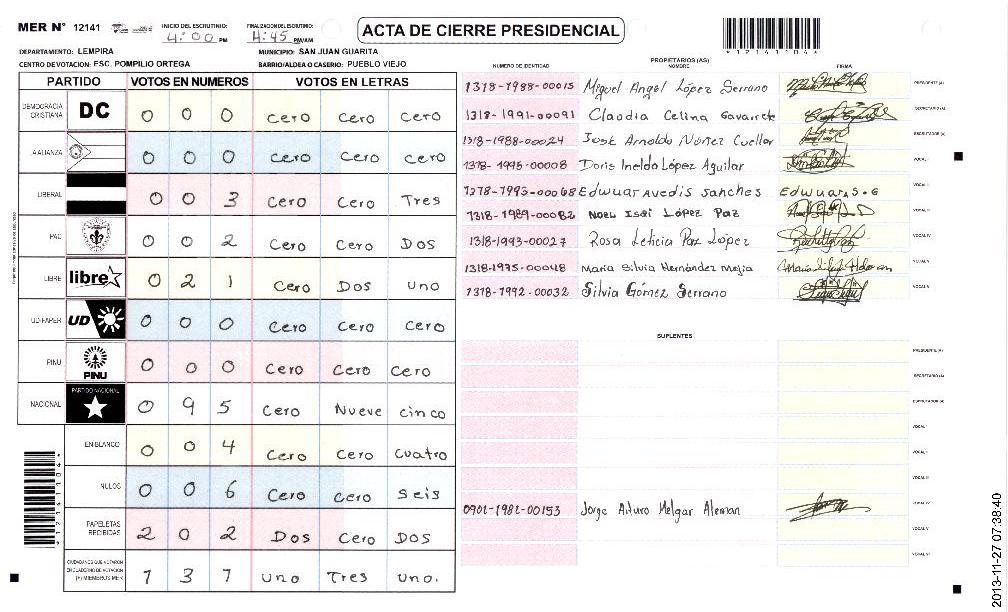 MER N° 12141
INICIO DEL ESCRUTINIO: 4:00 PM
FINALIZACION DEL ESCRUTINIO: 4:45 PM/AM
ACTA DE CIERRE PRESIDENCIAL
*12141104*
DEPARTAMENTO: LEMPIRA
MUNICIPIO: SAN JUAN GUARITA
CENTRO DE VOTACION: ESC. POMPILIO ORTEGA
BARRIO/ALDEA O CASERIO: PUEBLO VIEJO
PARTIDO VOTOS EN NUMEROS VOTOS EN LETRAS
DEMOCRACIA CRISTIANA DC 0 0 0 Cero Cero Cero
ALIANZA 0 0 0 Cero Cero Cero
LIBERAL 0 0 3 Cero Cero Tres
PAC 0 0 2 Cero Cero Dos
LIBRE libre 0 2 1 Cero Dos uno
UD-FAPER UD 0 0 0 Cero Cero Cero
PINU PINU 0 0 0 Cero Cero Cero
NACIONAL PARTIDO NACIONAL 0 9 5 Cero Nueve cinco
EN BLANCO 0 0 4 Cero Cero cuatro
NULOS 0 0 6 Cero Cero Seis
PAPELETAS RECIBIDAS 2 0 2 Dos Cero Dos
CIUDADANOS QUE VOTARON EN CUADERNO DE VOTACION (+) MIEMBROS MER 1 3 1 uno Tres uno.
*12141104*
PROPIETARIOS (AS)
NUMERO DE IDENTIDAD NOMBRE FIRMA
1318-1988-00015 Miguel Angel López Serrano PRESIDENTE (A)
1318-1991-00091 Claudia Celina Gavarrete SECRETARIO (A)
1318-1988-00024 José Arnoldo Núñez Cuellar ESCRUTADOR (A)
1318-1995-00008 Doris Inelda López Aguilar VOCAL I
1318-1993-00068 Edwuar Avedis Sanches Edwuar A S. G VOCAL II
1318-1989-00082 Noel Isai López Paz VOCAL III
1318-1993-00027 Rosa Leticia Paz López VOCAL IV
1318-1975-00048 Maria Silvia Hernández Mejia VOCAL V
1318-1992-00032 Silvia Gómez Serrano
SUPLENTES
PRESIDENTE (A)
SECRETARIO (A)
ESCRUTADOR (A)
VOCAL I
VOCAL II
VOCAL III
0901-1981-00153 Jorge Arturo Melgar Aleman VOCAL IV
VOCAL V
VOCAL VI
2013-11-27 07:38:40